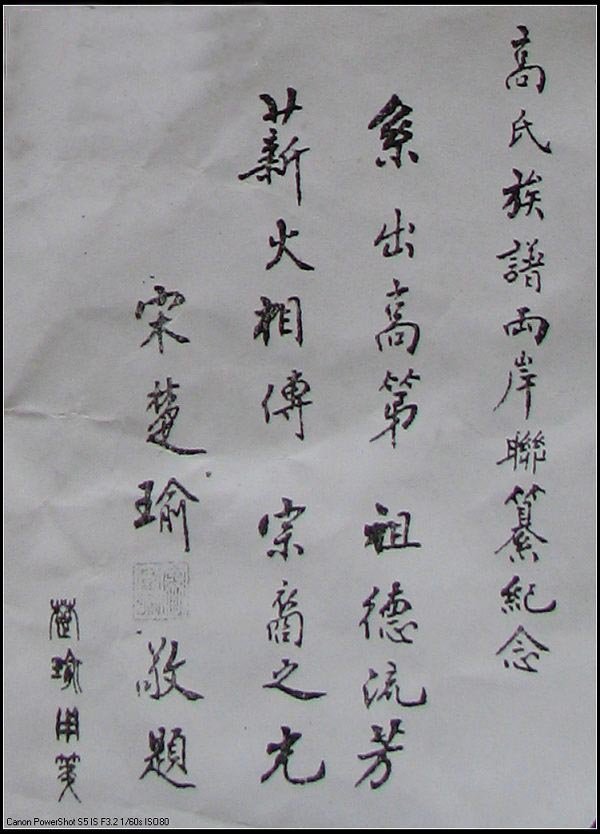 高氏族譜兩岸聯纂紀念
系出高第 祖德流芳
薪火相傳 宗裔之光
宋楚瑜 敬題
楚瑜用箋
Canon PowerShot S5 IS F3.2 1/60s ISO80